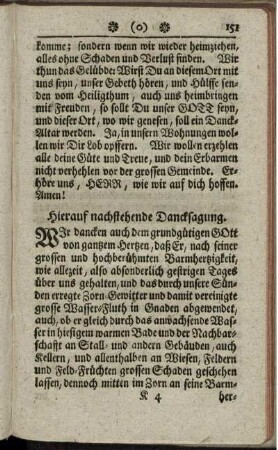 ❀ (o) ❀ 151
komme; sondern wenn wir wieder heimziehen,
alles ohne Schaden und Verlust finden. Wir
thun das Gelübde: Wirst Du an diesem Ort mit
uns seyn, unser Gebeth hören, und Hülffe sen-
den vom Heiligthum, auch uns heimbringen
mit Freuden, so solt Du unser GOTT seyn,
und dieser Ort, wo wir genesen, soll ein Danck-
Altar werden. Ja, in unsern Wohnungen wol-
len wir Dir Lob opffern. Wir wollen erzehlen
alle deine Güte und Treue, und dein Erbarmen
nicht verhehlen vor der grossen Gemeinde. Er-
höre uns, HERR, wie wir auf dich hoffen.
Amen!
Hierauf nachstehende Dancksagung.
WIr dancken auch dem grundgütigen GOtt
von gantzem Hertzen, daß Er, nach seiner
grossen und hochberühmten Barmhertzigkeit,
wie allezeit, also absonderlich gestrigen Tages
über uns gehalten, und das durch unsere Sün-
den erregte Zorn-Gewitter und damit vereinigte
grosse Wasser-Fluth in Gnaden abgewendet,
auch, ob er gleich durch das anwachsende Was-
ser in hiesigem warmen Bade und der Nachbar-
schafft an Stall- und andern Gebäuden, auch
Kellern, und allenthalben an Wiesen, Feldern
und Feld-Früchten grossen Schaden geschehen
lassen, dennoch mitten im Zorn an seine Barm-
K 4 her-